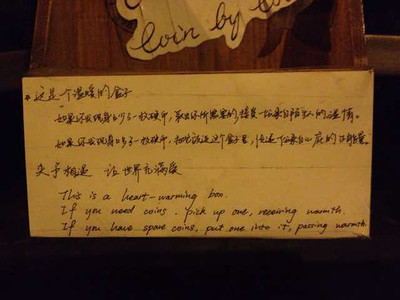 Coin by
*这是一个温暖的盒子
如果你发现身上少了一枚硬币,取出你所需要的,接受一份来自陌生人的温情。
如果你发现身上多了一枚硬币,把它放进这个盒子里,传递一份来自心底的正能量。
关乎相遇 让世界充满爱
This is a heart-warming box.
If you need coins, pick up one, receiving warmth.
If you have spare coins, put one into it, passing warmth.